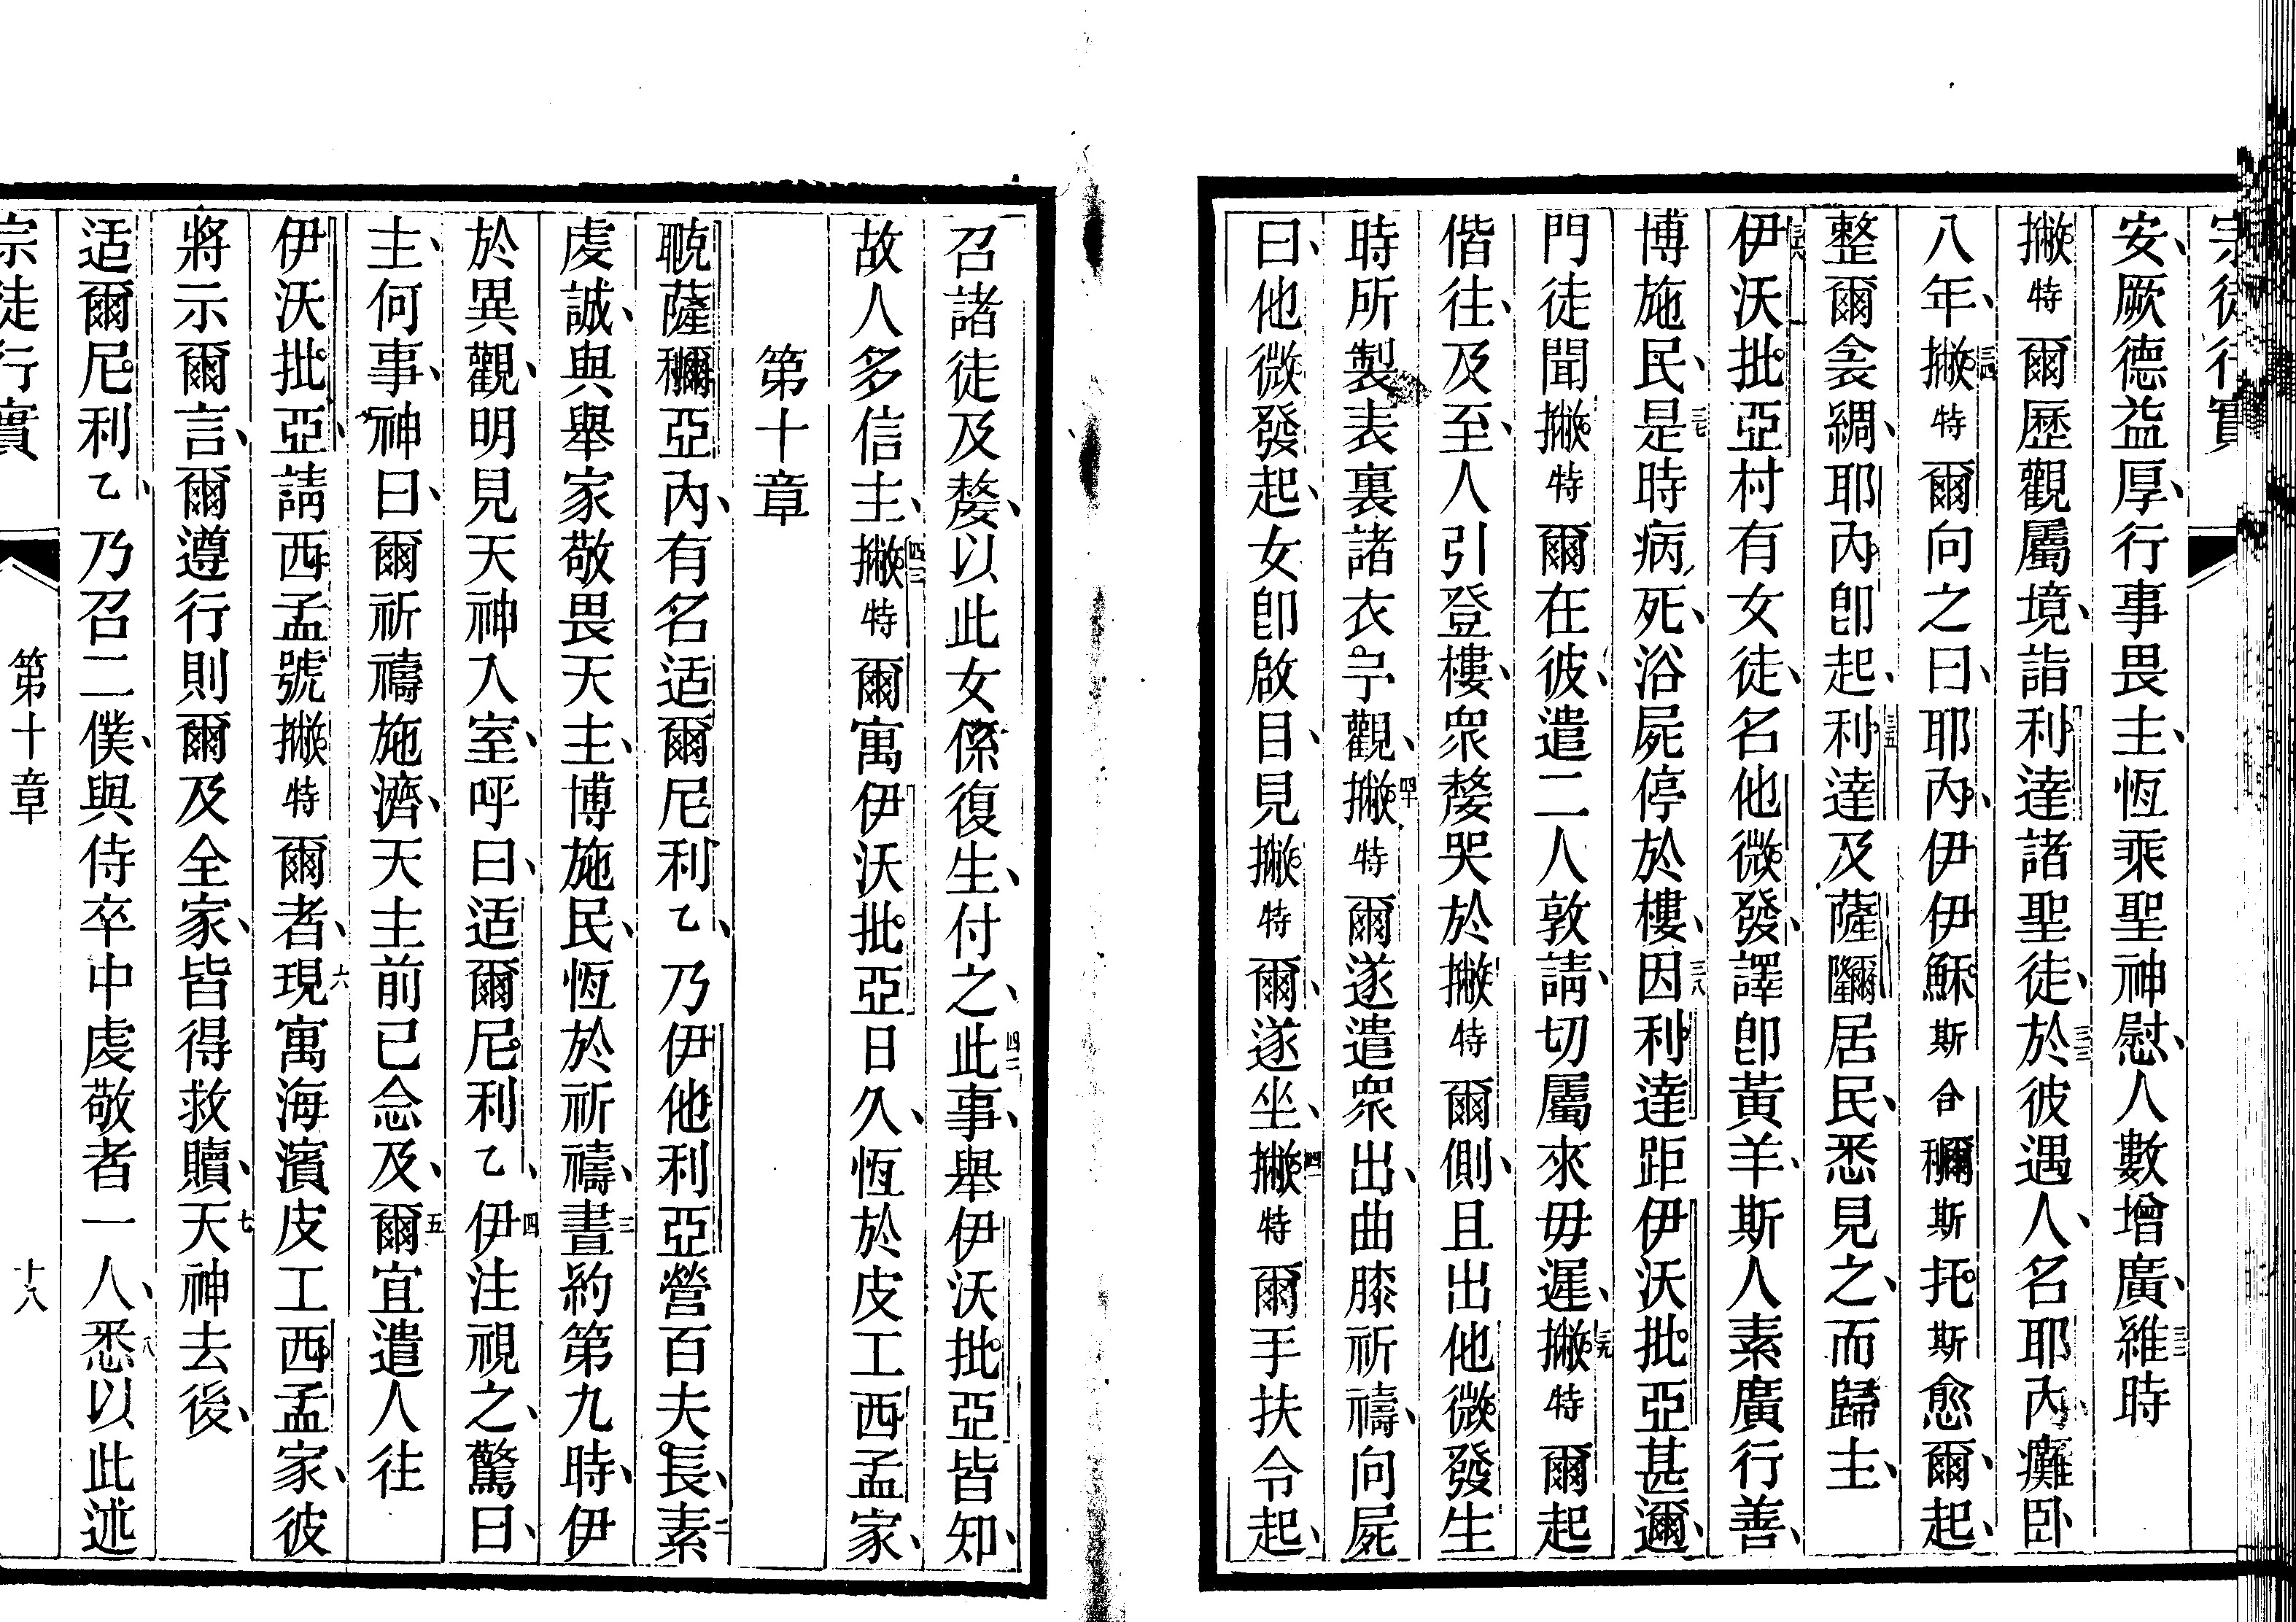 宗徒行實
安、厥德益厚、行事畏主、恆乘聖神慰、人數增廣、三二維時
撇特爾歷觀屬境、詣利達諸聖徒、三三於彼遇人、名耶內、癱臥
八年、三四撇特爾向之曰、耶內、伊伊穌斯合穪斯托斯愈爾、起、
整爾衾綢、耶內卽起、三五利達及薩隬居民、悉見之、而歸主、
三六伊沃批亞村有女徒、名他微發、譯卽黃羊、斯人素廣行善、
博施民、三七是時病死、浴屍停於樓、三八因利達距伊沃批亞甚邇、
門徒聞撇特爾在彼、遣二人敦請、切屬來毋遲、三九撇特爾起
偕往、及至、人引登樓、眾嫠哭於撇特爾側、且出他微發生
時所製表裏諸衣予觀、四十撇特爾遂遣眾出、曲膝祈禱、向屍
曰、他微發起、女卽啟目、見撇特爾、遂坐、四一撇特爾手扶令起、
召諸徒及嫠、以此女係復生、付之、四二此事、舉伊沃批亞皆知、
故人多信主、四三撇特爾寓伊沃批亞日久、恆於皮工西孟家、
第十章
聀薩穪亞內、有名适爾尼利乙、乃伊他利亞營百夫長、二素
虔誠、與舉家敬畏天主、博施民、恆於祈禱、三晝約第九時、伊
於異觀、明見天神入室、呼曰、适爾尼利乙、四伊注視之、驚曰、
主、何事、神曰、爾祈禱施濟、天主前已念及、五爾宜遣人往
伊沃批亞、請西孟號撇特爾者、六現寓海濱皮工西孟家、彼
將示爾言、爾遵行則爾及全家、皆得救贖、七天神去後、
适爾尼利乙、乃召二僕、與侍卒中虔敬者一人、八悉以此述
宗徒行實 第十章 十八